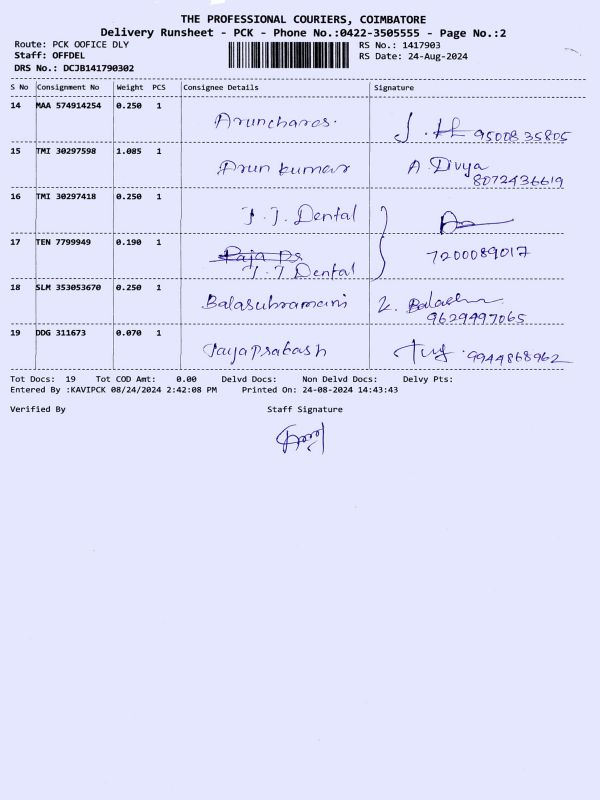 THE PROFESSIONAL COURIERS, COIMBATORE
Delivery Runsheet - PCK - Phone No.:0422-3505555 - Page No.:2
Route: PCK OOFICE DLY RS No.: 1417903
Staff: OFFDEL RS Date: 24-Aug-2024
DRS No.: DCJB141790302
S No Consignment No Weight PCS Consignee Details Signature
14 MAA 574914254 0.250 1
Arunchares. 9500835805
15 TMI 30297598 1.085 1
Arun kumar A. Divya
8072436619
16 TMI 30297418 0.250 1
J. J. Dental
17 TEN 7799949 0.190 1
Raja Ps 7200089017
J. J Dental
18 SLM 353053670 0.250 1
Balasubramani
9629497065
19 DDG 311673 0.070 1
Jayaprakash 9944868962
Tot Docs: 19 Tot COD Amt: 0.00 Delvd Docs: Non Delvd Docs: Delvy Pts:
Entered By :KAVIPCK 08/24/2024 2:42:08 PM Printed On: 24-08-2024 14:43:43
Verified By Staff Signature